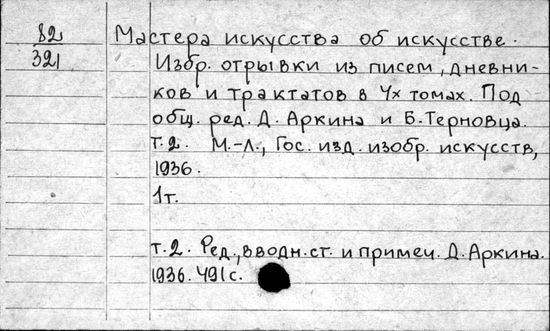 82 Мастера искусства об искусстве.
321 Избр. отрывки из писем, дневни-
ков и трактатов в 4х томах. Под
общ. ред. Д. Аркина и Б. Терновца.
т. 2. М.-Л., Гос. изд. изобр. искусств,
1936.
1т.
т. 2. Ред., вводн. ст. и примеч. Д. Аркина.
1936. 491 с.